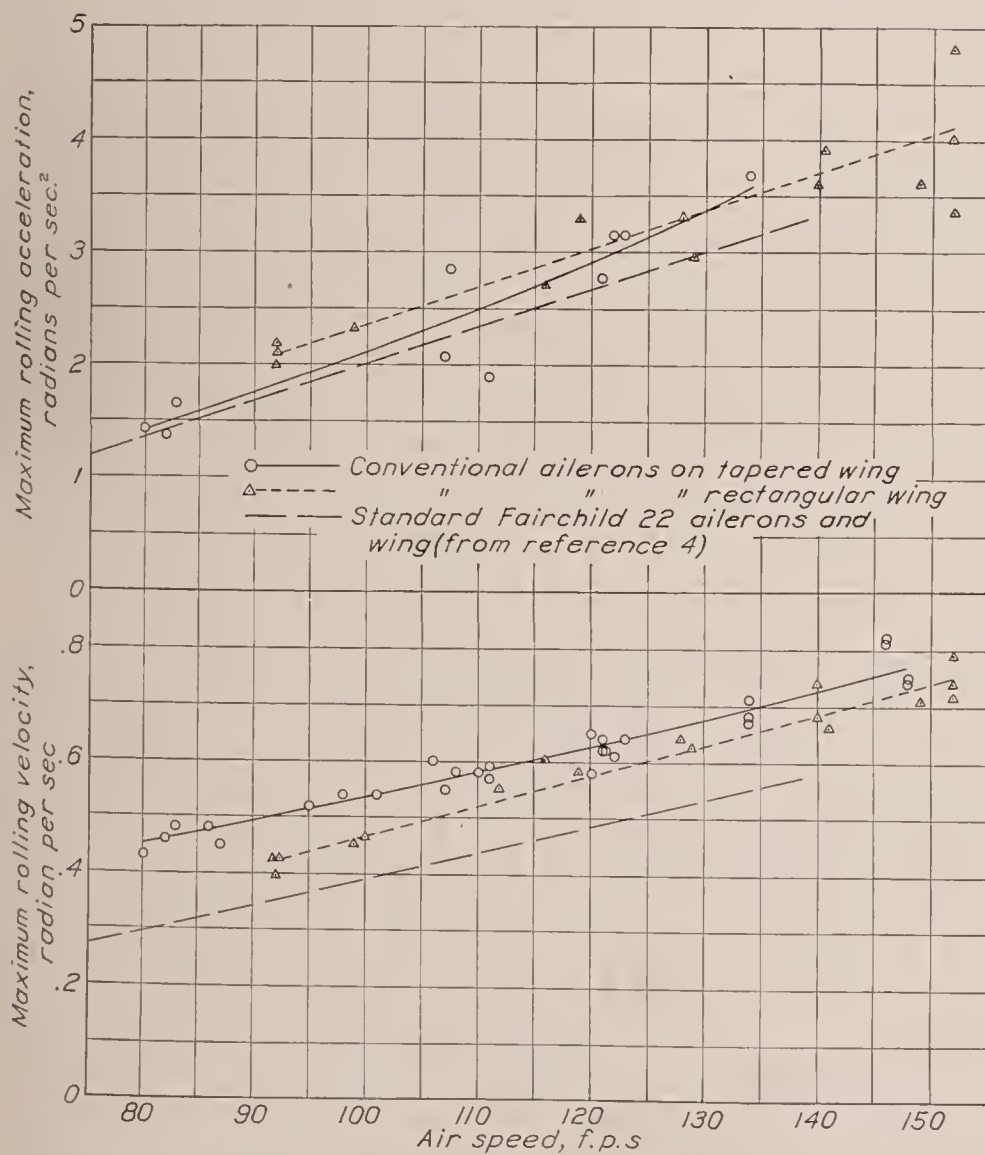 5
4
3
2
1
0
Maximum rolling acceleration,
radians per sec.²
Conventional ailerons on tapered wing
" " " rectangular wing
Standard Fairchild 22 ailerons and
wing (from reference 4)
.8
.6
.4
.2
0
Maximum rolling velocity,
radian per sec
80 90 100 110 120 130 140 150
Air speed, f.p.s